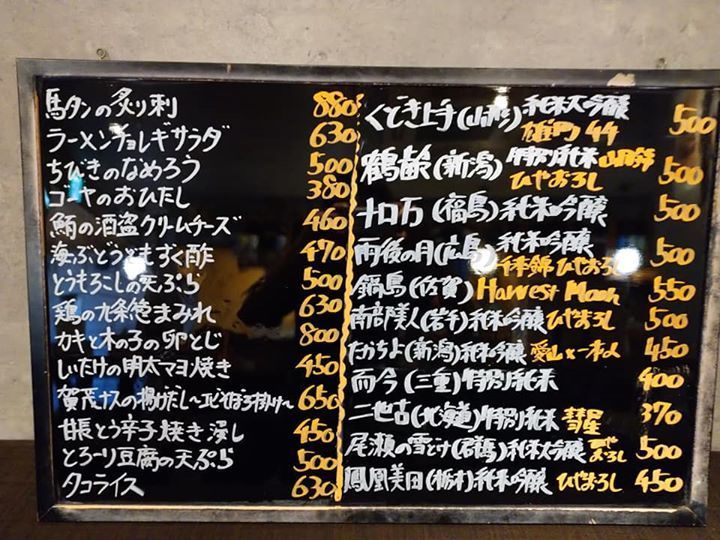 馬タンの炙り刺 880
ラーメンチョレギサラダ 630
ちびきのなめろう 500
ゴーヤのおひたし 380
鮪の酒盗クリームチーズ 460
海ぶどうともずく酢 470
とうもろこしの天ぷら 500
鶏の九条葱まみれ 630
カキと木の子の卵とじ 800
しいたけの明太マヨ焼き 450
賀茂ナスの揚げだし〜エビそぼろ掛け〜 650
甘長とう辛子焼き浸し 450
とろーり豆腐の天ぷら 500
タコライス 630
くどき上手(山形)純米大吟醸 雄町44 500
鶴齢(新潟)特別純米 山田錦 ひやおろし 500
十ロ万(福島)純米吟醸 500
雨後の月(広島)純米吟醸 千本錦 ひやおろし 500
鍋島(佐賀) Harvest Moon 550
南部美人(岩手)純米吟醸 ひやおろし 500
たかちよ(新潟)純米吟醸 愛山×一本〆 450
而今(三重)特別純米 400
二世古(北海道)特別純米 彗星 370
尾瀬の雪どけ(群馬)純米大吟醸 ひやおろし 500
鳳凰美田(栃木)純米吟醸 ひやおろし 450